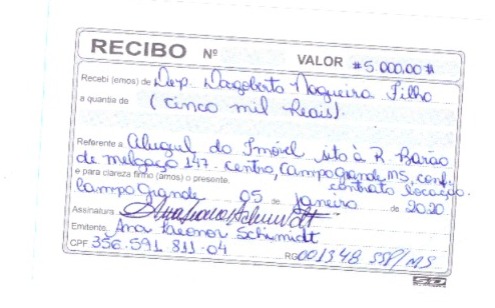 RECIBO Nº VALOR #5.000,00#
Recebi (emos) de Dep. Dagoberto Nogueira Filho
a quantia de (Cinco mil Reais).
Referente a Aluguel do Imóvel sito à R. Barão
de melgaço 147. Centro, Campo Grande, MS, conf.
contrato locação.
e para clareza firmo (amos) o presente.
Campo Grande 05 de Janeiro de 2020
Assinatura
Emitente Ana Leonor Schimidt
CPF 356.591 811-04 RG 001348 SSP/MS